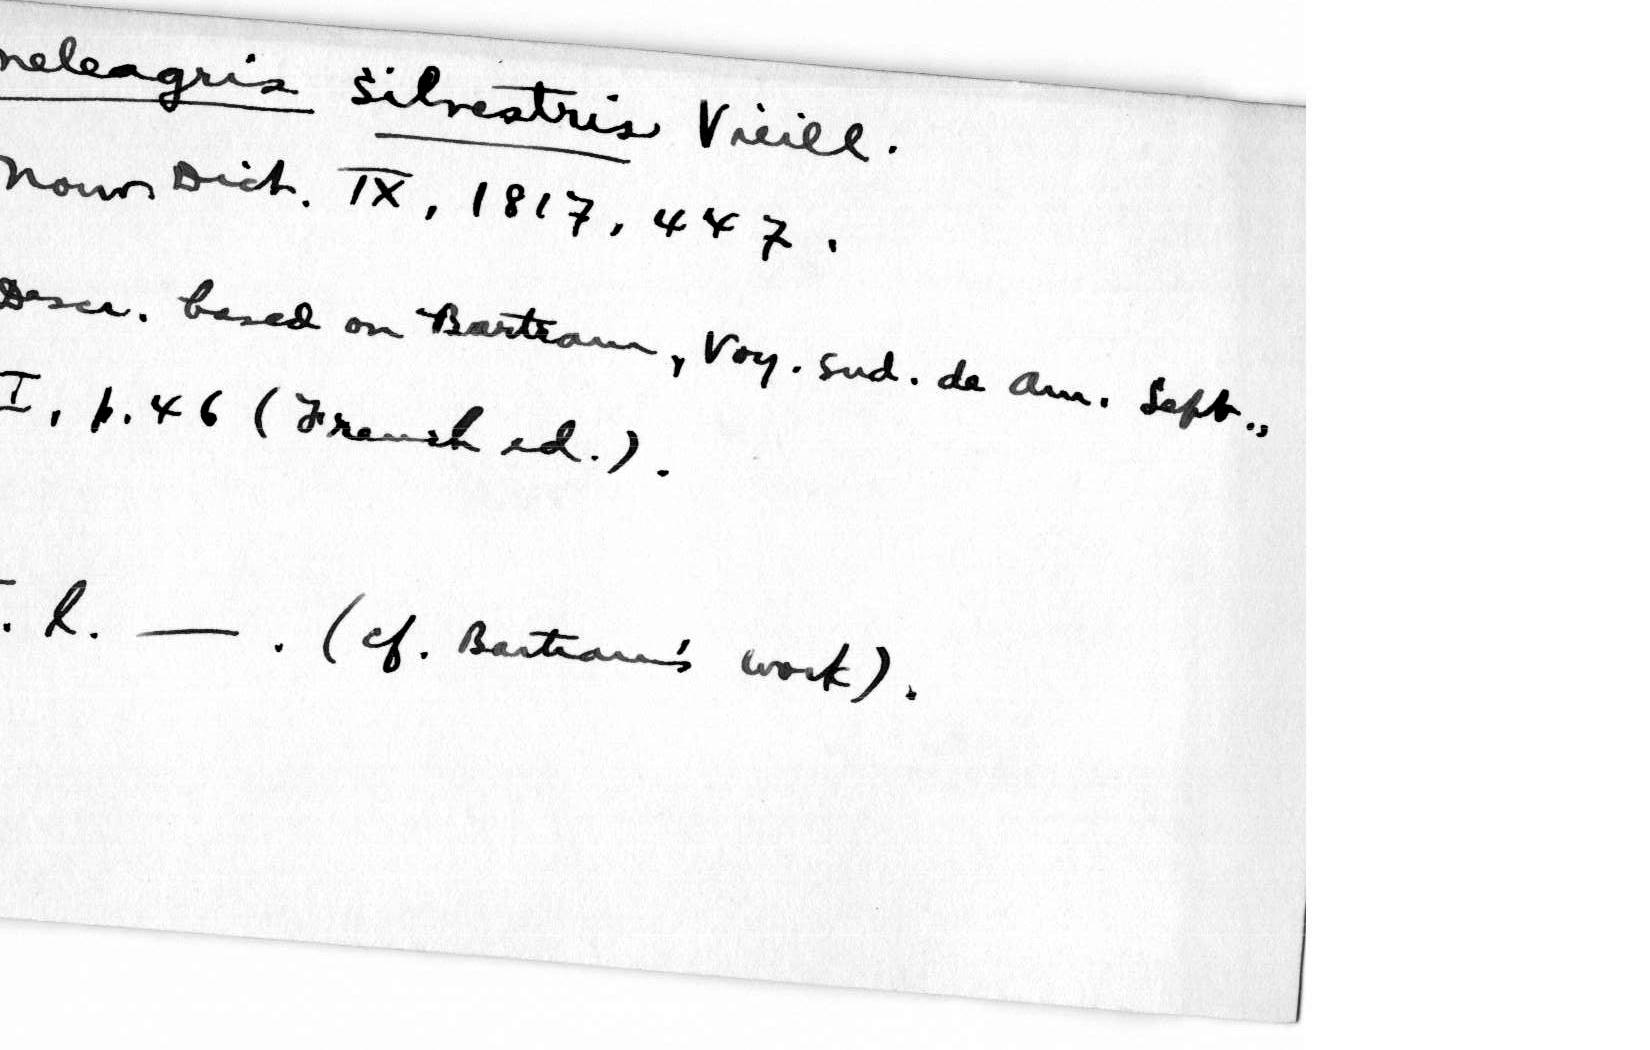 Meleagris silvestris Vieill.
Nouv Dict. IX, 1817, 447.
Descr. based on Bartram, Voy. sud. de Am. Sept.,
I, p. 46 (French ed.).
T. l. — . (cf. Bartram's work).